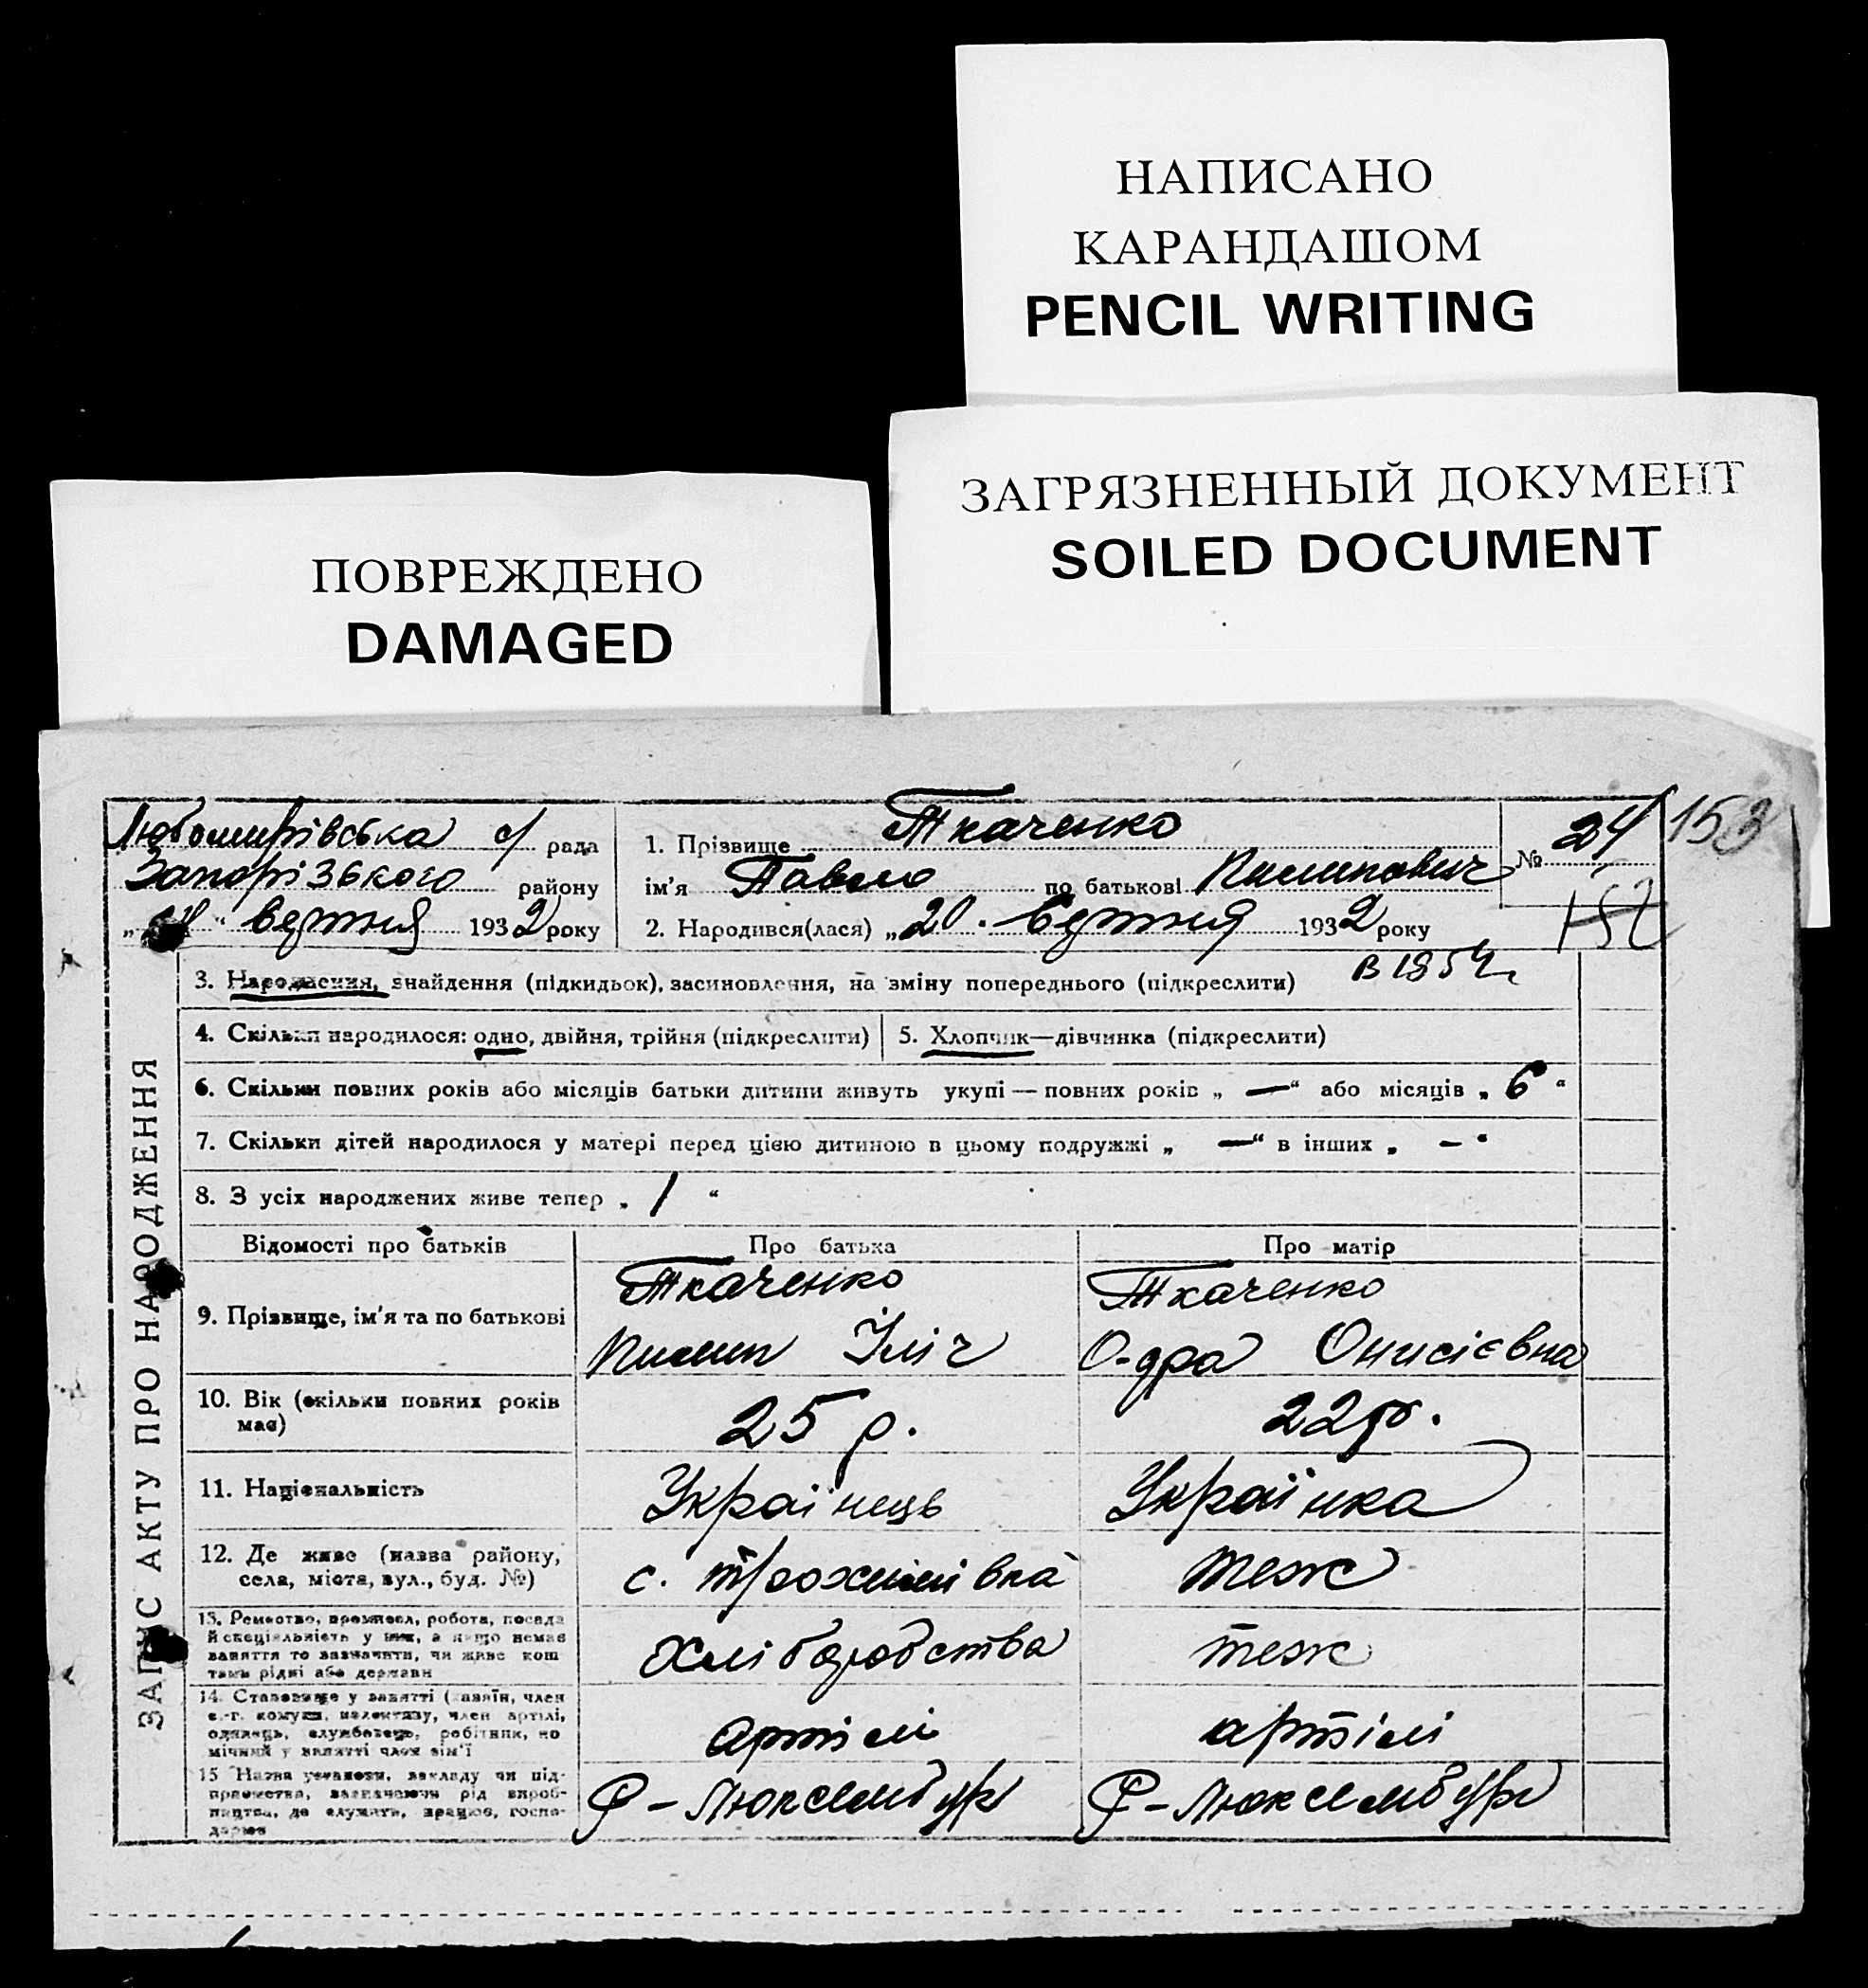 НАПИСАНО
КАРАНДАШОМ
PENCIL WRITING
ЗАГРЯЗНЕННЫЙ ДОКУМЕНТ
SOILED DOCUMENT
ПОВРЕЖДЕНО
DAMAGED
Любомирівська с/ рада
Запорізького району
" вертня 1932 року
1. Прізвище Ткаченко
ім'я Павло по батькові Пилипович
2. Народився(лася) „20. вертня 1932 року
№ 24
153
152
3. Народження, знайдення (підкидьок), засиновлення, на зміну попереднього (підкреслити)
4. Скільки народилося: одно, двійня, трійня (підкреслити)
5. Хлопчик—дівчинка (підкреслити)
6. Скільки повних років або місяців батьки дитини живуть укупі — повних років „ — “ або місяців „ 6 “
7. Скільки дітей народилося у матері перед цією дитиною в цьому подружжі „ — “ в інших „ — “
8. З усіх народжених живе тепер „ 1 “
ЗАПИС АКТУ ПРО НАРОДЖЕННЯ
Відомості про батьків
Про батька
Про матір
9. Прізвище, ім'я та по батькові
Ткаченко
Пилип Іліч
Ткаченко
Онисієвна
10. Вік (скільки повних років
має)
25 р.
22 р.
11. Національність
Українець
Українка
12. Де живе (назва району,
села, міста, вул., буд. №)
с.
теж
13. Ремество, промисел, робота, посада
й спеціяльність у них, а якщо немає
заняття то зазначити, чи живе кош
тами рідні або держави
Хліборобства
теж
14. Становище у занятті (хазяїн, член
с.-г. комуни, колективу, член артілі,
одинець, службовець, робітник, по
мічний у занятті член сім'ї
артілі
артілі
15 Назва установи, закладу чи під-
приємства, зазначаючи рід вироб-
ництва, де служить, працює, госпо-
дарює
Р-Люксембург
Р-Люксембург